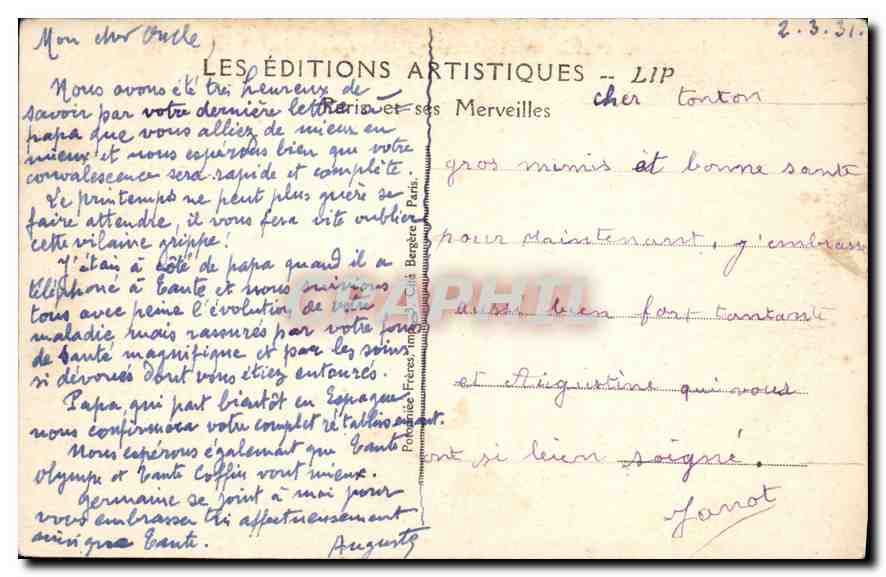 2.3.31.
Mon cher Oncle,
LES ÉDITIONS ARTISTIQUES -- LIP
Paris et ses Merveilles
Nous avons été très heureux de
savoir par votre dernière lettre à
papa que vous alliez de mieux en
mieux et nous espérons bien que votre
convalescence sera rapide et complète.
Le printemps ne peut plus guère se
faire attendre, il vous fera vite oublier
cette vilaine grippe!
J'étais à côté de papa quand il a
téléphoné à Tante et nous suivions
tous avec peine l'évolution de votre
maladie, mais rassurés par votre fond
de santé magnifique et par les soins
si dévoués dont vous étiez entourés.
Papa, qui part bientôt en Espagne
nous confirmera votre complet rétablissement.
Nous espérons également que Tante
Olympe et Tante Coffin vont mieux.
Germaine se joint à moi pour
vous embrasser très affectueusement
ainsi que Tante.
Auguste
Potonniée Frères, imp. Cité Bergère Paris.
cher tonton
gros mimis et bonne sante
pour maintenant, j'embrasse
aussi bien fort tantante
et Augustine qui vous
ont si bien soigné.
Janot
CPAPHIL